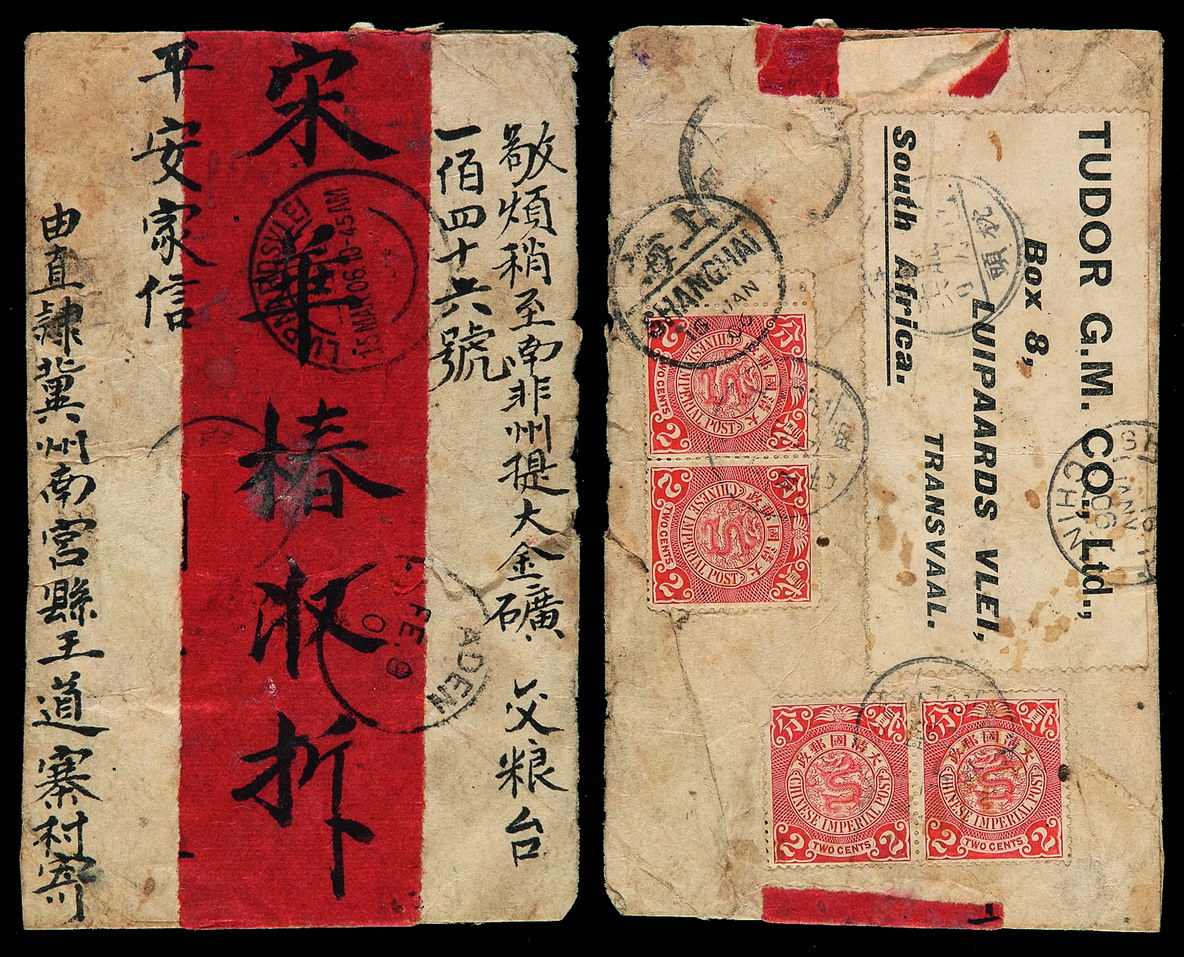 敬煩稍至南非州提大金礦 交粮台
一佰四十六號
宋華椿收折
平安家信
由直隸冀州南宮縣王道寨村寄
LUIPAARDSVLEI
15 MAR 06 10-45AM
ADEN
FE. 9
TUDOR G.M. CO., Ltd.,
Box 8,
LUIPAARDS VLEI,
TRANSVAAL.
South Africa.
上海
SHANGHAI
JAN
大清國郵政
貳分
CHINESE IMPERIAL POST
TWO CENTS
2 2
大清國郵政
貳分
CHINESE IMPERIAL POST
TWO CENTS
2 2
大清國郵政
貳分
CHINESE IMPERIAL POST
TWO CENTS
2 2
大清國郵政
貳分
CHINESE IMPERIAL POST
TWO CENTS
2 2
JANV
06
CHINE